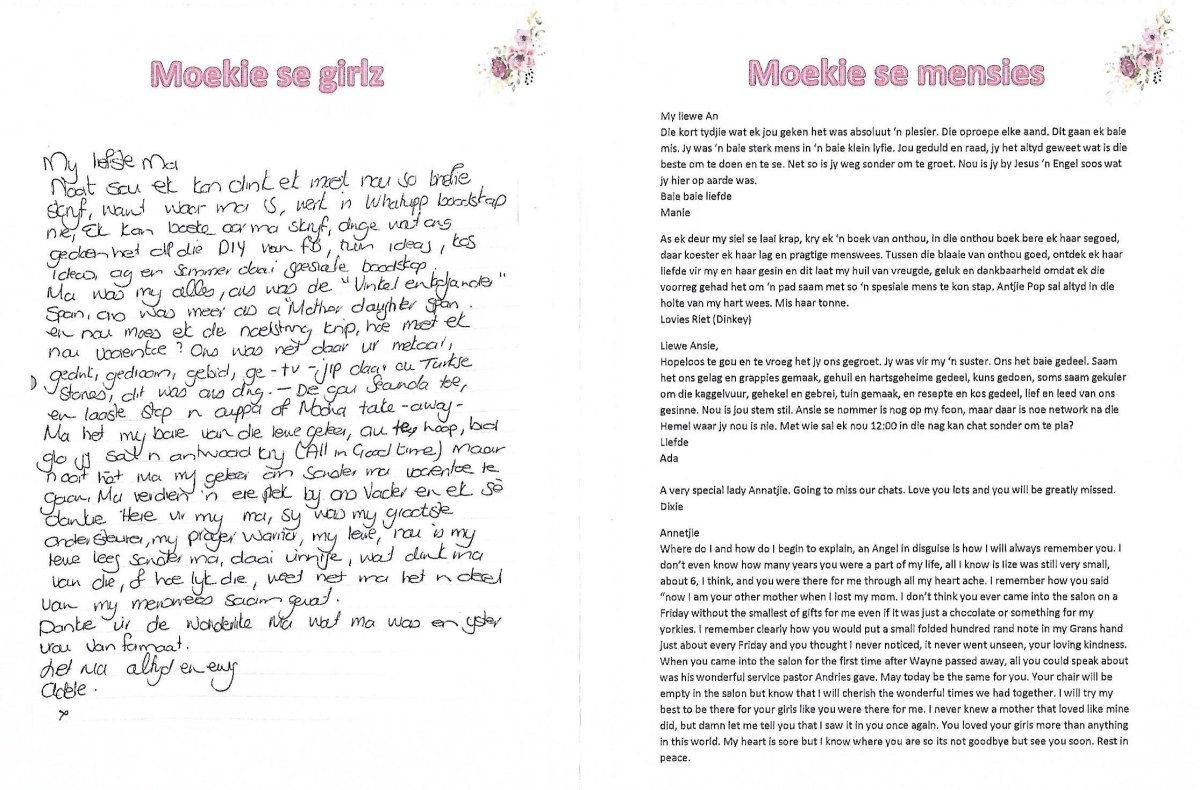 Moekie se girlz
My liefste Ma
Nooit sou ek kon dink ek moet nou so briefie
skryf, want waar ma is, werk 'n Whatsapp boodskap
nie, Ek kan boeke oor ma skryf, dinge wat ons
gedoen het of die DIY van FB, tuin ideas, kos
ideas, ag en sommer daai spesiale boodskap.
Ma was my alles, ons was de "Vinkel en koljander"
span, ons was meer as a "Mother daughter span.
en nou moes ek de naelstring knip, hoe moet ek
nou voorentoe? Ons was net daar vir mekaar,
gedink, gedroom, gebid, ge-tv-jip daar ou Turkse
Stories, dit was ons ding. - De gou Seanola toe,
en laaste stop n cuppa of Nocha take-away-
Ma het my baie van die lewe geleer, ou hoop, bid
glo jy sal 'n antwoord kry (All in Good time) maar
nooit het Ma my geleer om sonder ma voorentoe te
gaan. Ma verdien 'n ere plek by ons Vader en ek sê
dankie Here vir my ma, sy was my grootste
ondersteuner, my prayer Warrior, my lewe, nou is my
lewe leeg sonder ma, daai vinnige, wat dink ma
van die, of hoe lyk die, weet net ma het 'n deel
van my menswees saam gevat.
Dankie vir de wonderlike Ma wat ma was en yster
vrou van formaat.
Lief Ma altyd en ewig
Adele.
x
Moekie se mensies
My liewe An
Die kort tydjie wat ek jou geken het was absoluut 'n plesier. Die oproepe elke aand. Dit gaan ek baie
mis. Jy was 'n baie sterk mens in 'n baie klein lyfie. Jou geduld en raad, jy het altyd geweet wat is die
beste om te doen en te se. Net so is jy weg sonder om te groet. Nou is jy by Jesus 'n Engel soos wat
jy hier op aarde was.
Baie baie liefde
Manie
As ek deur my siel se laai krap, kry ek 'n boek van onthou, in die onthou boek bere ek haar segoed,
daar koester ek haar lag en pragtige menswees. Tussen die blaaie van onthou goed, ontdek ek haar
liefde vir my en haar gesin en dit laat my huil van vreugde, geluk en dankbaarheid omdat ek die
voorreg gehad het om 'n pad saam met so 'n spesiale mens te kon stap. Antjie Pop sal altyd in die
holte van my hart wees. Mis haar tonne.
Lovies Riet (Dinkey)
Liewe Ansie,
Hopeloos te gou en te vroeg het jy ons gegroet. Jy was vir my 'n suster. Ons het baie gedeel. Saam
het ons gelag en grappies gemaak, gehuil en hartsgeheime gedeel, kuns gedoen, soms saam gekuier
om die kaggelvuur, gehekel en gebrei, tuin gemaak, en resepte en kos gedeel, lief en leed van ons
gesinne. Nou is jou stem stil. Ansie se nommer is nog op my foon, maar daar is noe network na die
Hemel waar jy nou is nie. Met wie sal ek nou 12:00 in die nag kan chat sonder om te pla?
Liefde
Ada
A very special lady Annatjie. Going to miss our chats. Love you lots and you will be greatly missed.
Dixie
Annetjie
Where do I and how do I begin to explain, an Angel in disguise is how I will always remember you. I
don't even know how many years you were a part of my life, all I know is Ilze was still very small,
about 6, I think, and you were there for me through all my heart ache. I remember how you said
"now I am your other mother when I lost my mom. I don't think you ever came into the salon on a
Friday without the smallest of gifts for me even if it was just a chocolate or something for my
yorkies. I remember clearly how you would put a small folded hundred rand note in my Grans hand
just about every Friday and you thought I never noticed, it never went unseen, your loving kindness.
When you came into the salon for the first time after Wayne passed away, all you could speak about
was his wonderful service pastor Andries gave. May today be the same for you. Your chair will be
empty in the salon but know that I will cherish the wonderful times we had together. I will try my
best to be there for your girls like you were there for me. I never knew a mother that loved like mine
did, but damn let me tell you that I saw it in you once again. You loved your girls more than anything
in this world. My heart is sore but I know where you are so its not goodbye but see you soon. Rest in
peace.